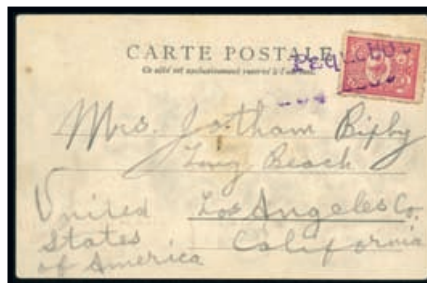 CARTE POSTALE
Ce côté est exclusivement réservé à l'adresse.
Mrs. Jotham Bixby
Long Beach
Los Angeles Co.
California
United
States
of America